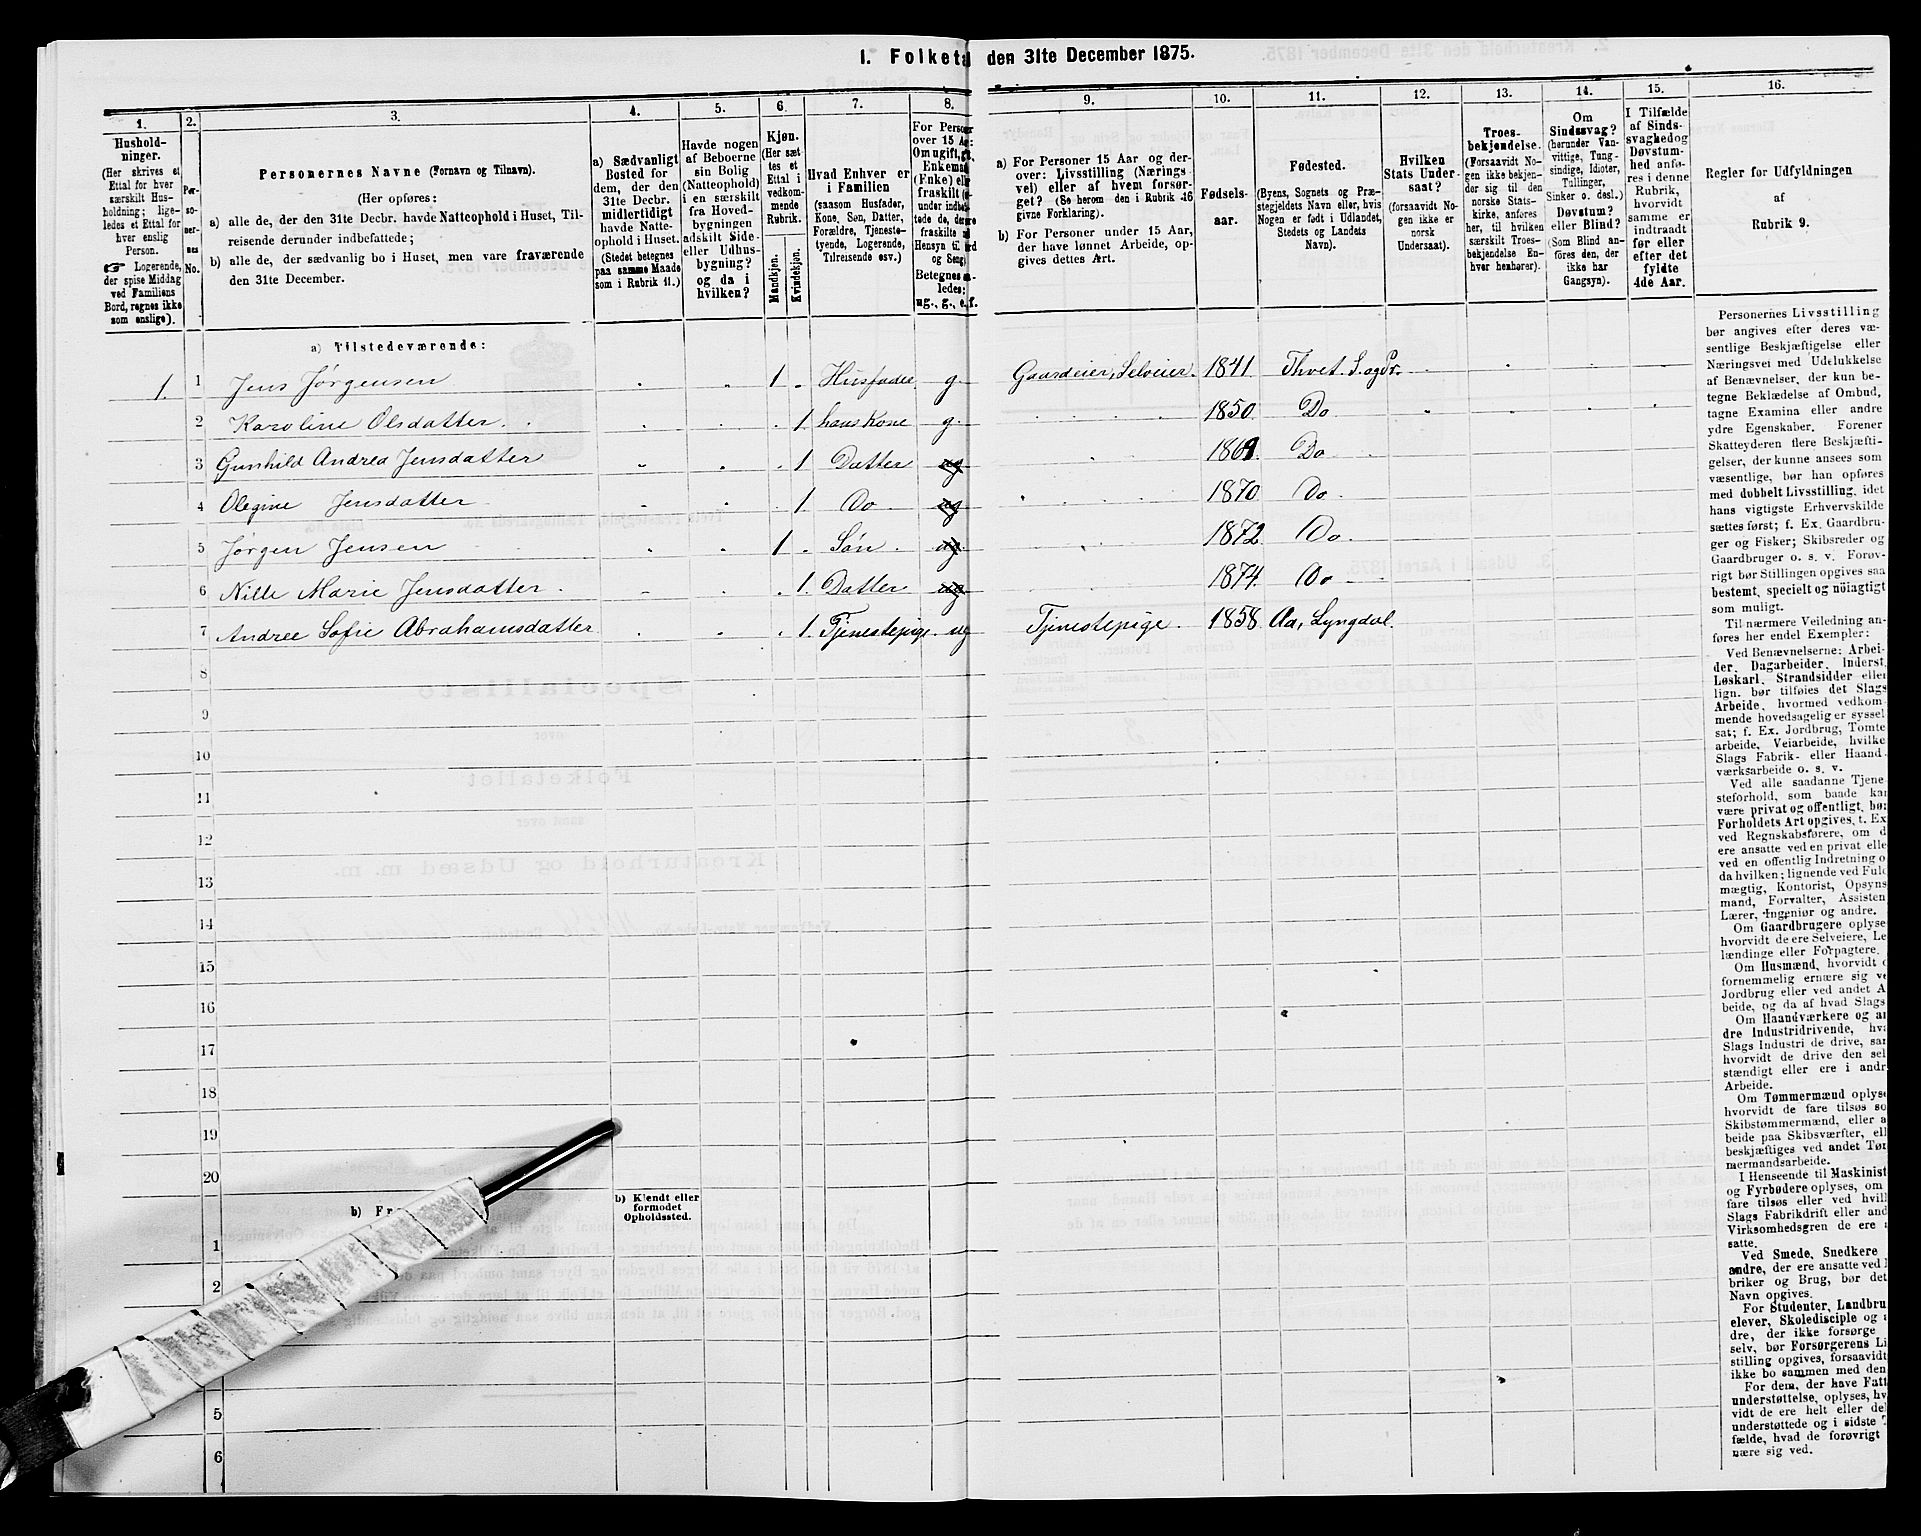 1. Folketal den 31te December 1875.
1. 2. 3. 4. 5. 6. 7. 8. 9. 10. 11. 12. 13. 14. 15. 16.
Hushold-
ninger.
(Her skrives et
Ettal for hver
særskilt Hus-
holdning; lige-
ledes et Ettal for
hver enslig
Person.
☞ Logerende,
der spise Middag
ved Familiens
Bord, regnes ikke
som enslige).
Per-
so-
ner-
nes
No.
Personernes Navne (Fornavn og Tilnavn).
(Her opføres:
a) alle de, der den 31te Decbr. havde Natteophold i Huset, Til-
reisende derunder indbefattede;
b) alle de, der sædvanlig bo i Huset, men vare fraværende
den 31te December.
a) Sædvanligt
Bosted for
dem, der den
31te Decbr.
midlertidigt
havde Natte-
ophold i Huset.
(Stedet betegnes
paa samme Maade
som i Rubrik 11.)
Havde nogen
af Beboerne
sin Bolig
(Natteophold)
i en særskilt
fra Hoved-
bygningen
adskilt Side-
eller Udhus-
bygning?
og da i
hvilken?
Kjøn.
(Her sæt-
tes et
Ettal i
vedkom-
mende
Rubrik.
Mandkjøn.
Kvindekjøn.
Hvad Enhver er
i Familien
(saasom Husfader,
Kone, Søn, Datter,
Forældre, Tjeneste-
tyende, Logerende,
Tilreisende osv.)
For Personer
over 15 Aar:
Om ugift, gift,
Enkemand
(Enke) eller
fraskilt
Betegnes saa-
ledes:
ug., g., e., f.
a) For Personer 15 Aar og der-
over: Livsstilling (Nærings-
vei) eller af hvem forsør-
get? (Se herom den i Rubrik 16
givne Forklaring).
b) For Personer under 15 Aar,
der have lønnet Arbeide, op-
gives dettes Art.
Fødsels-
aar.
Fødested.
(Byens, Sognets og Præ-
stegjeldets Navn eller, hvis
Nogen er født i Udlandet,
Stedets og Landets
Navn).
Hvilken
Stats Under-
saat?
(forsaavidt No-
gen ikke er
norsk
Undersaat).
Troes-
bekjendelse.
(Forsaavidt No-
gen ikke bekjen-
der sig til den
norske Stats-
kirke, anføres
her, til hvilken
særskilt Troes-
bekjendelse En-
hver henhører).
Om
Sindssvag?
(herunder Van-
vittige, Tung-
sindige, Idioter,
Tullinger,
Sinker o. desl.).
Døvstum?
eller Blind?
(Som Blind an-
føres den, der
ikke har
Gangsyn).
I Tilfælde
af Sinds-
svaghed og
Døvstum-
hed anfø-
res i denne
Rubrik,
hvorvidt
samme er
indtraadt
før eller
efter det
fyldte
4de Aar.
Regler for Udfyldningen
af
Rubrik 9.
a) Tilstedeværende:
1. 1 Jens Jørgensen 1 Husfader g. Gaardeier, Selveier. 1841 Thvet S. og Pr.
2 Karoline Olsdatter 1 hans Kone g. 1850 Do
3 Gunhild Andrea Jensdatter 1 Datter ug 1869 Do
4 Olegine Jensdatter 1 Do ug 1870 Do
5 Jørgen Jensen 1 Søn ug 1872 Do
6 Nille Marie Jensdatter 1 Datter ug 1874 Do
7 Andree Sofie Abrahamsdatter 1 Tjenestepige ug Tjenestepige 1858 Aa, Lyngdal.
8
9
10
11
12
13
14
15
16
17
18
19
20
b) Fr
b) Kjendt eller
formodet
Opholdssted.
1
2
5
6
Personernes Livsstilling
bør angives efter deres væ-
sentlige Beskjæftigelse eller
Næringsvei med Udelukkelse
af Benævnelser, der kun be-
tegne Beklædelse af Ombud,
tagne Examina eller andre
ydre Egenskaber. Forener
Skatteyderen flere Beskjæfti-
gelser, der kunne ansees som
væsentlige, bør han opføres
med dobbelt Livsstilling, idet
hans vigtigste Erhvervskilde
sættes først; f. Ex. Gaardbru-
ger og Fisker; Skibsreder og
Gaardbruger o. s. v. Forøv-
rigt bør Stillingen opgives saa
bestemt, specielt og nøiagtigt
som muligt.
Til nærmere Veiledning an-
føres her endel Exempler:
Ved Benævnelserne: Arbei-
der, Dagarbeider, Inderst,
Løskarl, Strandsidder eller
lign. bør tilføies det Slags
Arbeide, hvormed vedkom-
mende hovedsagelig er syssel-
sat; f. Ex. Jordbrug, Tomte-
arbeide, Veiarbeide, hvilket
Slags Fabrik- eller Haand-
værksarbeide o. s. v.
Ved alle saadanne Tjene-
steforhold, som baade kan
være privat og offentligt, bør
Forholdets Art opgives, t. Ex.
ved Regnskabsførere, om de
ere ansatte ved en privat eller
ved en offentlig Indretning og
da hvilken; lignende ved Fuld-
mægtig, Kontorist, Opsyns-
mand, Forvalter, Assistent,
Lærer, Ingeniør og andre.
Om Gaardbrugere oplyses,
hvorvidt de ere Selveiere, Lei-
lændinge eller Forpagtere.
Om Husmænd, hvorvidt de
fornemmelig ernære sig ved
Jordbrug eller ved andet Ar-
beide, og da af hvad Slags.
Om Haandværkere og an-
dre Industridrivende, hvad
Slags Industri de drive, samt
hvorvidt de drive den selv-
stændigt eller ere i andres
Arbeide.
Om Tømmermænd oplyses,
hvorvidt de fare tilsøs som
Skibstømmermænd, eller ar-
beide paa Skibsværfter, eller
beskjæftiges ved andet Tøm-
mermandsarbeide.
I Henseende til Maskinister
og Fyrbødere oplyses, om de
fare tilsøs eller ved hvilket
Slags Fabrikdrift eller anden
Virksomhedsgren de ere an-
satte.
Ved Smede, Snedkere og
andre, der ere ansatte ved Fa-
briker og Brug, bør dettes
Navn opgives.
For Studenter, Landbrugs-
elever, Skoledisciple og an-
dre, der ikke forsørge sig
selv, bør Forsørgerens Liv-
stilling opgives, forsaavidt de
ikke bo sammen med denne.
For dem, der have Fattig-
understøttelse, oplyses, hvor-
vidt de ere helt eller delvis
understøttede og i sidste Til-
fælde, hvad de forøvrigt er-
nære sig ved.